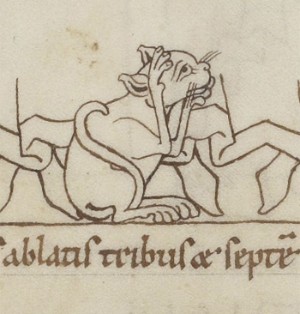 s ablatis tribus æ septē